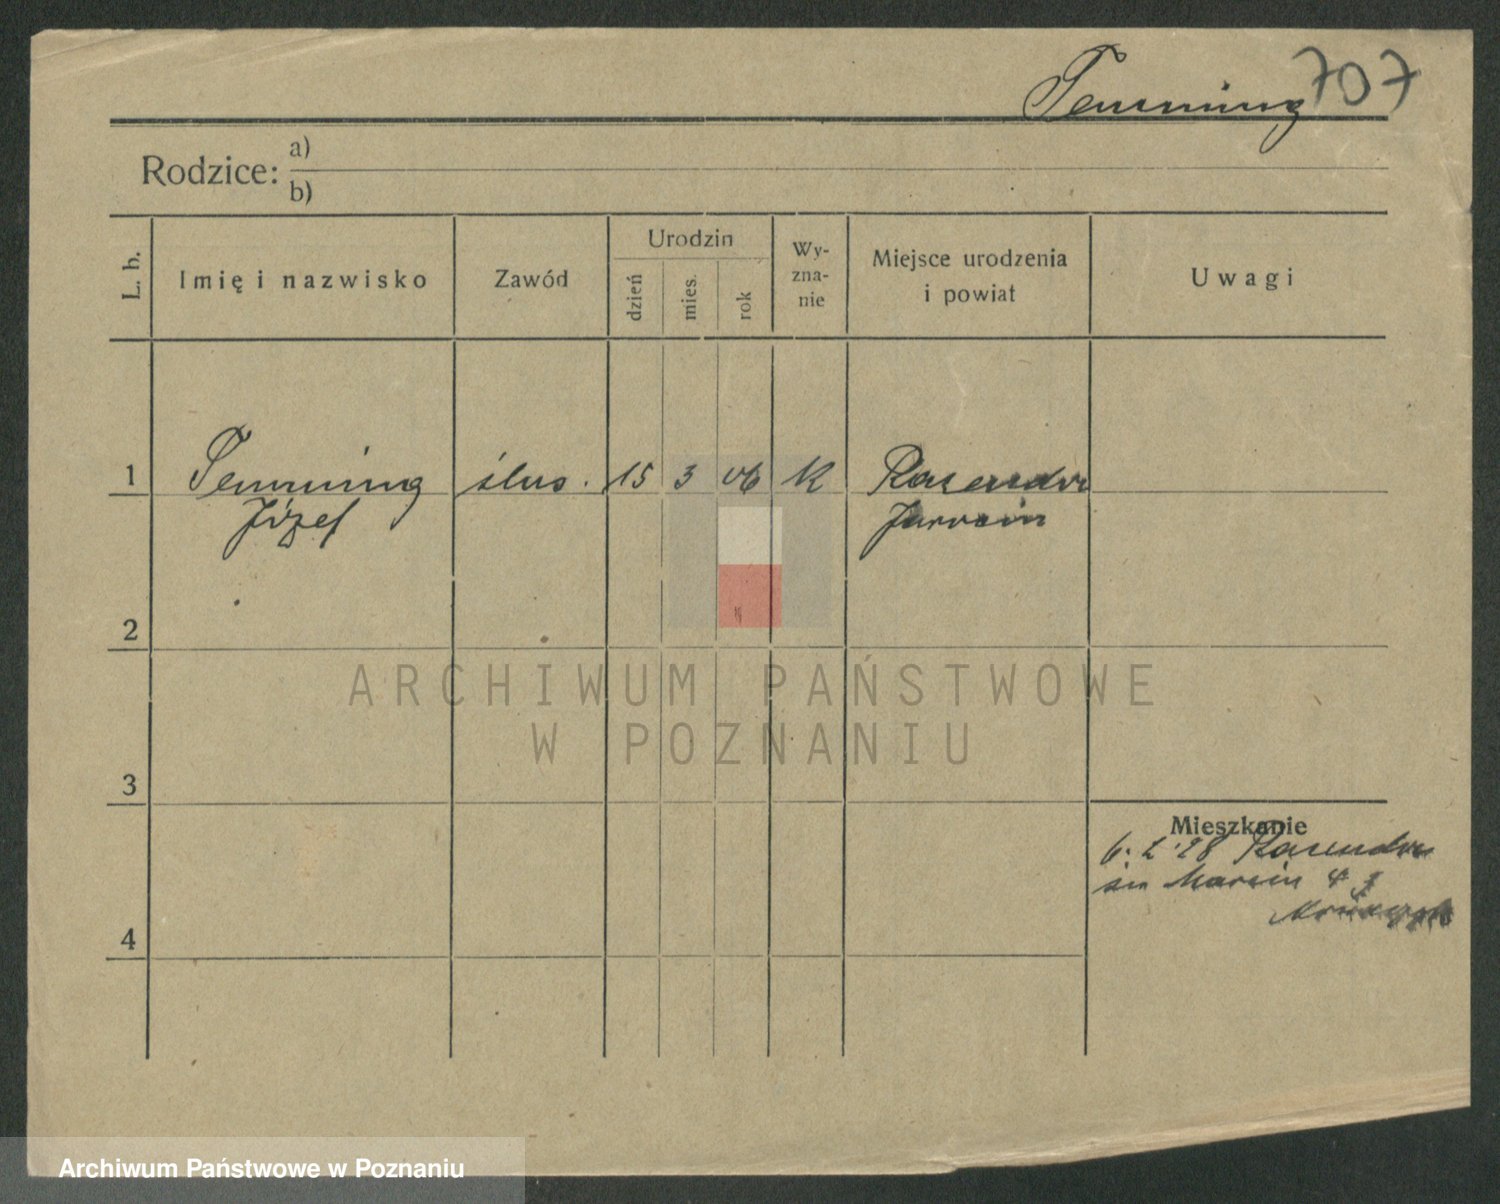 707
Temming
Rodzice: a)
b)
L. b.
Imię i nazwisko
Zawód
Urodzin
dzień
mies.
rok
Wy-
zna-
nie
Miejsce urodzenia
i powiat
Uwagi
1 Temming ślus. 15 3 06 K
Józef Jarocin
2
3
4
Mieszkanie
św Marcin 4
ARCHIWUM PAŃSTWOWE
W POZNANIU
Archiwum Państwowe w Poznaniu